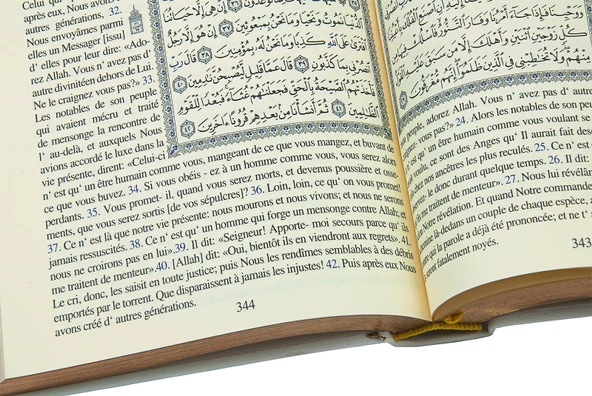 après eux. Nous avons
autres générations. 32.
Nous envoyâmes parmi
elles un Messager [issu]
d' elles pour leur dire: «Ado-
rez Allah. Vous n' avez pas d'
autre divinitéen dehors de Lui.
Ne le craignez vous pas?» 33.
Les notables de son peuple
qui avaient mécru et traité
de mensonge la rencontre de
l' au-delà, et auxquels Nous
avions accordé le luxe dans la
إِنْ هِيَ إِلَّا حَيَاتُنَا
الدُّنْيَا نَمُوتُ وَنَحْيَا وَمَا نَحْنُ بِمَبْعُوثِينَ ٣٧ إِنْ هُوَ إِلَّا رَجُلٌ
افْتَرَىٰ عَلَى اللَّهِ كَذِبًا وَمَا نَحْنُ لَهُ بِمُؤْمِنِينَ ٣٨ قَالَ رَبِّ
انْصُرْنِي بِمَا كَذَّبُونِ ٣٩ قَالَ عَمَّا قَلِيلٍ لَيُصْبِحُنَّ نَادِمِينَ ٤٠
فَأَخَذَتْهُمُ الصَّيْحَةُ بِالْحَقِّ فَجَعَلْنَاهُمْ غُثَاءً فَبُعْدًا لِلْقَوْمِ
الظَّالِمِينَ ٤١ ثُمَّ أَنْشَأْنَا مِنْ بَعْدِهِمْ قُرُونًا آخَرِينَ ٤٢
vie présente, dirent: «Celui-ci
n' est qu' un être humain comme vous, mangeant de ce que vous mangez, et buvant de
ce que vous buvez. 34. Si vous obéis - ez à un homme comme vous, vous serez alors
perdants. 35. Vous promet- il, quand vous serez morts, et devenus poussière et osse-
ments, que vous serez sortis [de vos sépulcres]? 36. Loin, loin, ce qu' on vous promet!
37. Ce n' est là que notre vie présente: nous mourons et nous vivons; et nous ne serons
jamais ressuscités. 38. Ce n' est qu' un homme qui forge un mensonge contre Allah; et
nous ne croirons pas en lui».39. Il dit: «Seigneur! Apporte- moi secours parce qu' ils
me traitent de menteur».40. [Allah] dit: «Oui, bientôt ils en viendront aux regrets». 41.
Le cri, donc, les saisit en toute justice; puis Nous les rendîmes semblables à des débris
emportés par le torrent. Que disparaissent à jamais les injustes! 42. Puis après eux Nous
avons créé d' autres générations.
344
وَوَحْيِنَا فَإِذَا جَاءَ أَمْرُنَا وَفَارَ التَّنُّورُ فَاسْلُكْ فِيهَا مِنْ
كُلٍّ زَوْجَيْنِ اثْنَيْنِ وَأَهْلَكَ إِلَّا مَنْ سَبَقَ عَلَيْهِ الْقَوْلُ
مِنْهُمْ وَلَا تُخَاطِبْنِي فِي الَّذِينَ ظَلَمُوا إِنَّهُمْ مُغْرَقُونَ
peuple, adorez Allah. Vous n' avez pas d' autre
-vous pas?» 24. Alors les notables de son peu
qu' un être humain comme vous voulant se
ce sont des Anges qu' Il aurait fait des
nos ancêtres les plus reculés. 25. Ce n' est
le donc durant quelque temps. 26. Il dit:
me traitent de menteur». 27. Nous lui révélâm
Notre révélation. Et quand Notre commande
là-dedans un couple de chaque espèce, a
que la parole a déjà été prononcée; et ne t' a
fatalement noyés.
343